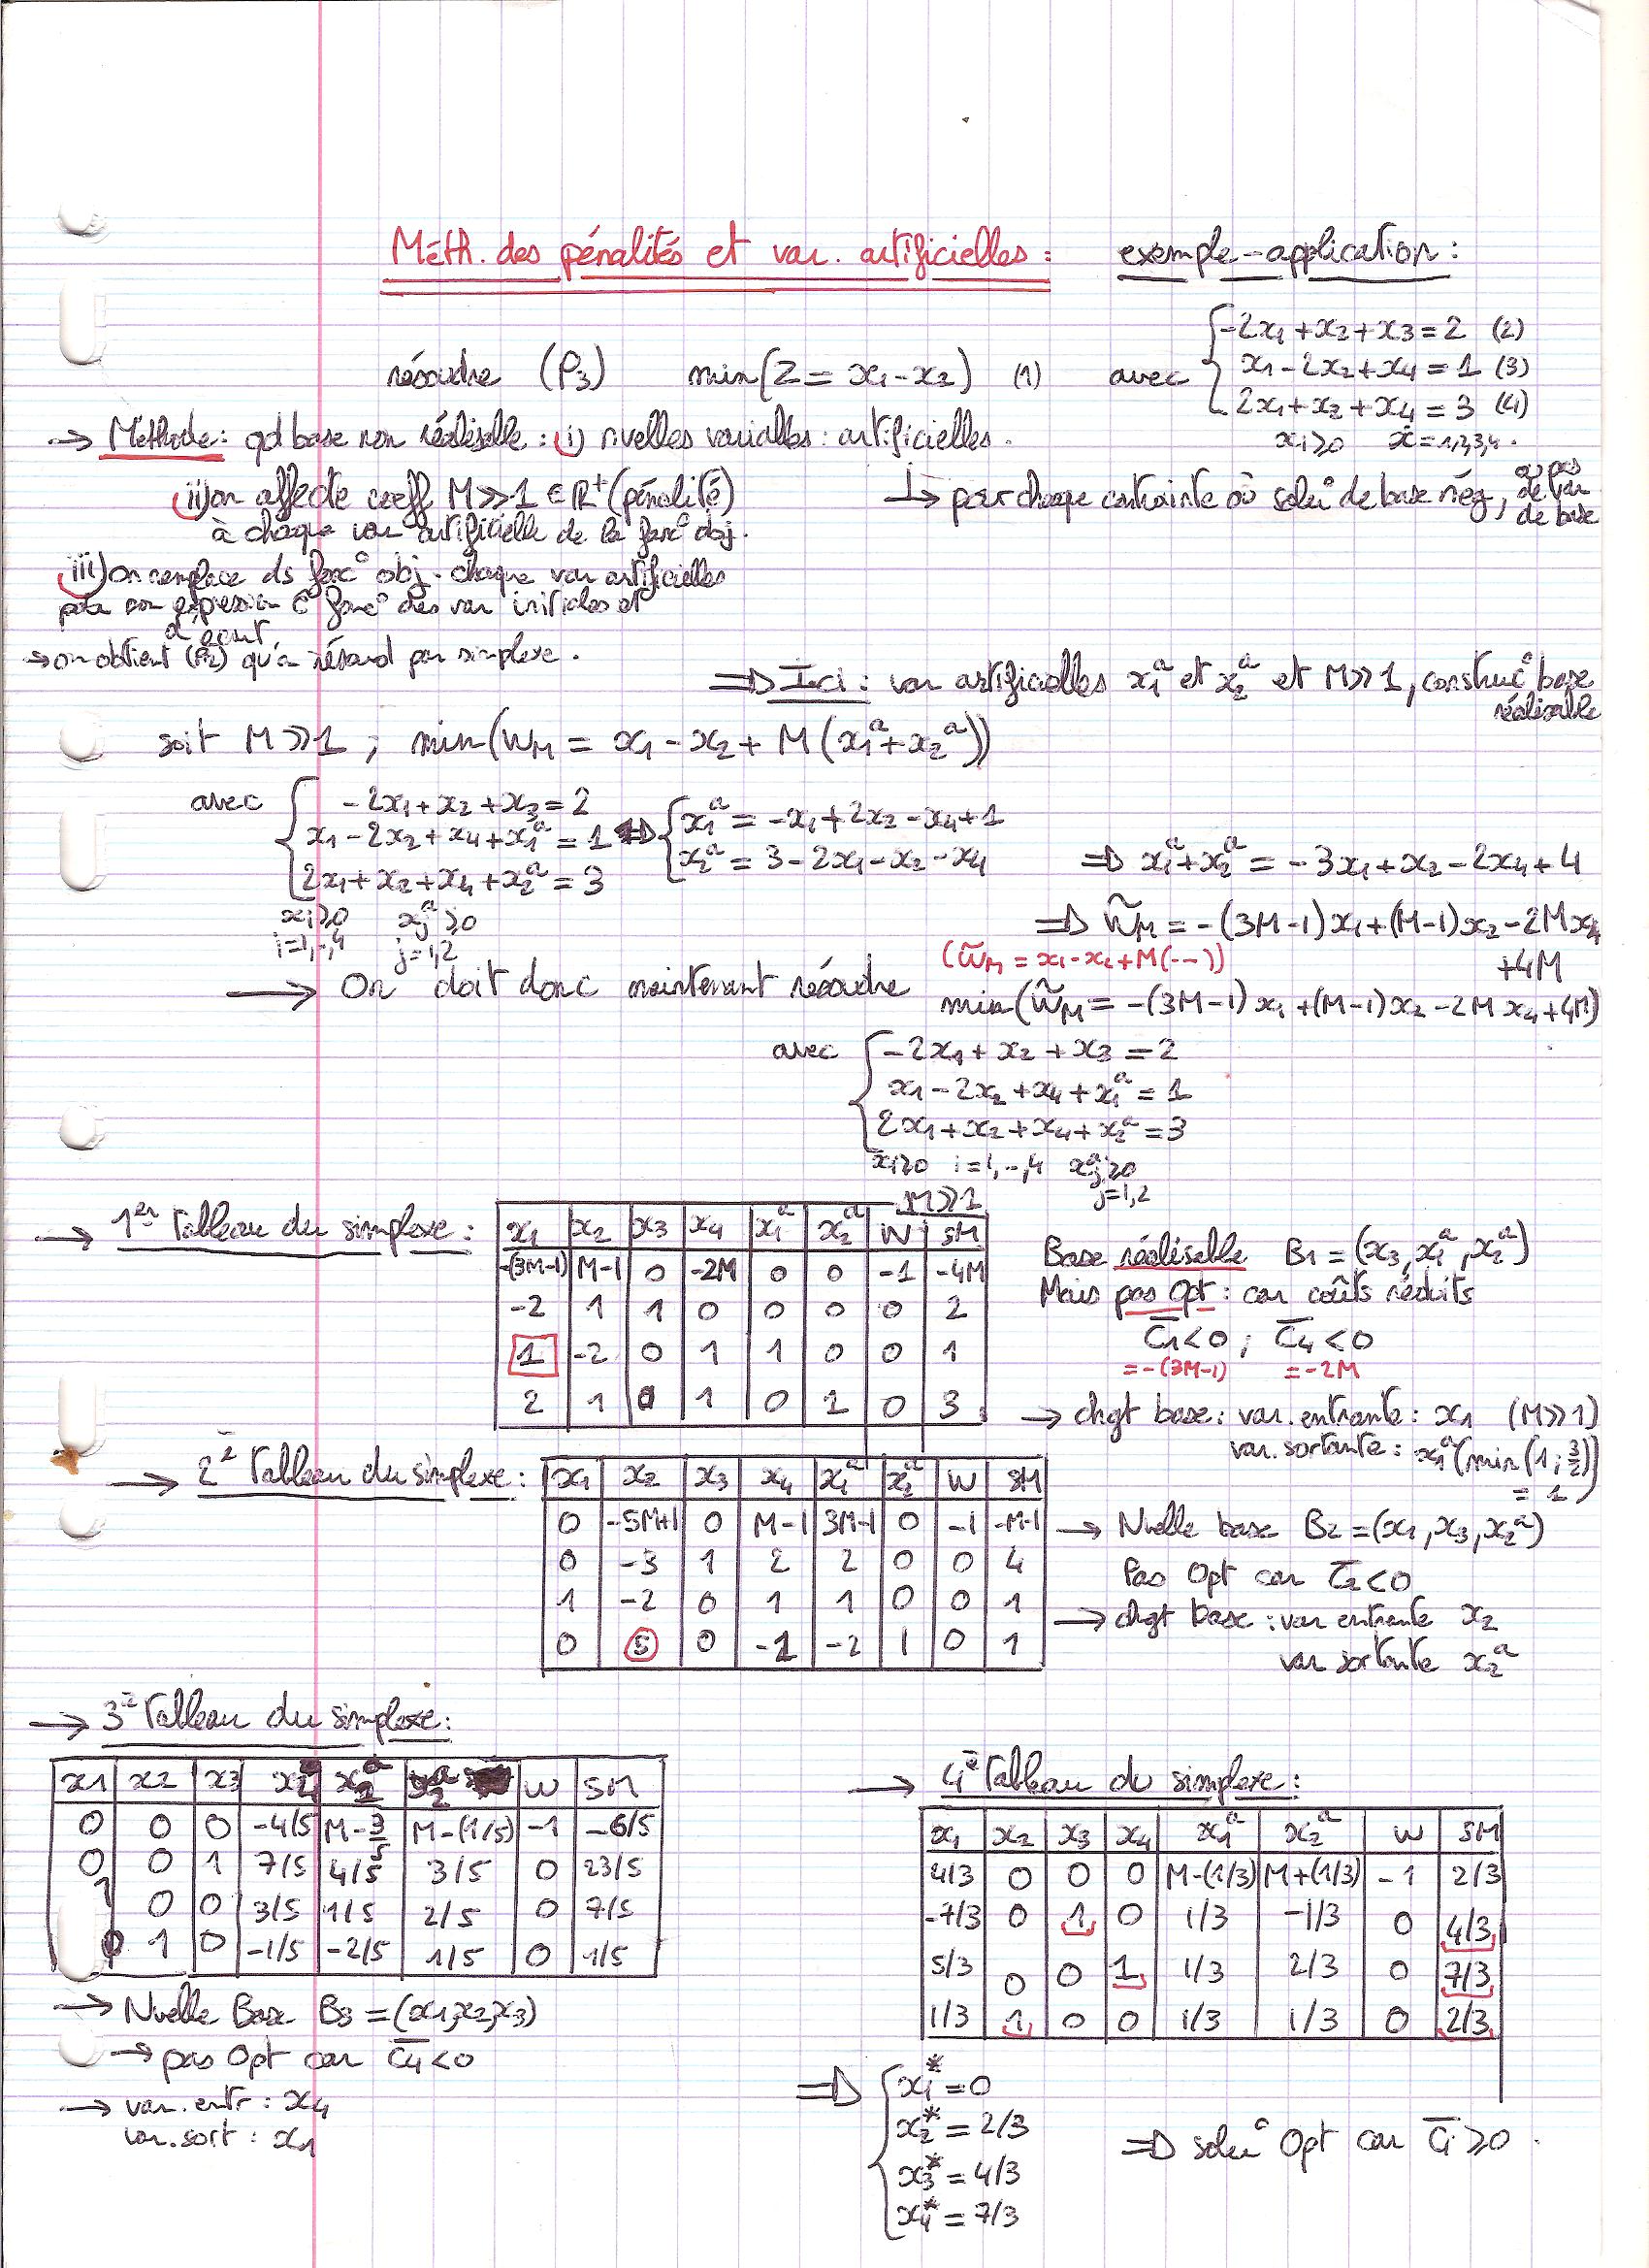 Méth. des pénalités et var. artificielles : exemple-application :
résoudre (P3) min(Z = x1 - x2) (1) avec
{ -2x1 + x2 + x3 = 2 (2)
x1 - 2x2 + x4 = 1 (3)
2x1 + x2 + x4 = 3 (4)
xi ≥ 0 i = 1,2,3,4.
→ Méthode : qd base non réalisable : i) nvelles variables : artificielles.
↳ pour chaque contrainte où solu° de base nég, ou pas de var de base
ii) on affecte coeff M >> 1 ∈ R+ (pénalité)
à chaque var artificielle de la fonc° obj.
iii) on remplace ds fonc° obj. chaque var artificielles
par son expression fonc° des var initiales et
d'écart
→ on obtient (P2) qu'on résoud par simplexe.
⇒ Ici : var artificielles x1^a et x2^a et M >> 1, construc° base
réalisable
soit M >> 1 ; min(WM = x1 - x2 + M(x1^a + x2^a))
avec { -2x1 + x2 + x3 = 2
x1 - 2x2 + x4 + x1^a = 1 ⇔ { x1^a = -x1 + 2x2 - x4 + 1
2x1 + x2 + x4 + x2^a = 3 x2^a = 3 - 2x1 - x2 - x4
⇒ x1^a + x2^a = -3x1 + x2 - 2x4 + 4
xi ≥ 0 xj^a ≥ 0
i = 1,..,4 j = 1,2
⇒ W̃M = -(3M-1)x1 + (M-1)x2 - 2Mx4
+4M
(W̃M = x1 - x2 + M(---))
→ On doit donc maintenant résoudre
min(W̃M = -(3M-1)x1 + (M-1)x2 - 2Mx4 + 4M)
avec { -2x1 + x2 + x3 = 2
x1 - 2x2 + x4 + x1^a = 1
2x1 + x2 + x4 + x2^a = 3
xi ≥ 0 i = 1,..,4 xj^a ≥ 0
j = 1,2
M >> 1
→ 1er Tableau du simplexe :
x1 x2 x3 x4 x1^a x2^a W SM
-(3M-1) M-1 0 -2M 0 0 -1 -4M
-2 1 1 0 0 0 0 2
1 -2 0 1 1 0 0 1
2 1 0 1 0 1 0 3
Base réalisable B1 = (x3, x1^a, x2^a)
Mais pas Opt : car coûts réduits
C̄1 < 0 ; C̄4 < 0
= -(3M-1) = -2M
→ chgt base : var. entrante : x1 (M >> 1)
var. sortante : x1^a (min(1 ; 3/2)
= 1)
→ 2è Tableau du simplexe :
x1 x2 x3 x4 x1^a x2^a W SM
0 -5M+1 0 M-1 3M-1 0 -1 -M-1
0 -3 1 2 2 0 0 4
1 -2 0 1 1 0 0 1
0 5 0 -1 -2 1 0 1
→ Nvelle base B2 = (x1, x3, x2^a)
Pas Opt car C̄2 < 0
→ chgt base : var entrante x2
var sortante x2^a
→ 3è Tableau du simplexe :
x1 x2 x3 x4 x1^a x2^a W SM
0 0 0 -4/5 M-3/5 M-(1/5) -1 -6/5
0 0 1 7/5 4/5 3/5 0 23/5
1 0 0 3/5 1/5 2/5 0 7/5
0 1 0 -1/5 -2/5 1/5 0 1/5
→ Nvelle Base B3 = (x1, x2, x3)
→ pas Opt car C̄4 < 0
→ var. entr : x4
var. sort : x1
→ 4è Tableau du simplexe :
x1 x2 x3 x4 x1^a x2^a W SM
4/3 0 0 0 M-(1/3) M+(1/3) -1 2/3
-7/3 0 1 0 1/3 -1/3 0 4/3
5/3 0 0 1 1/3 2/3 0 7/3
1/3 1 0 0 1/3 1/3 0 2/3
⇒ { x1* = 0
x2* = 2/3
x3* = 4/3
x4* = 7/3
⇒ solu° Opt car C̄i ≥ 0.